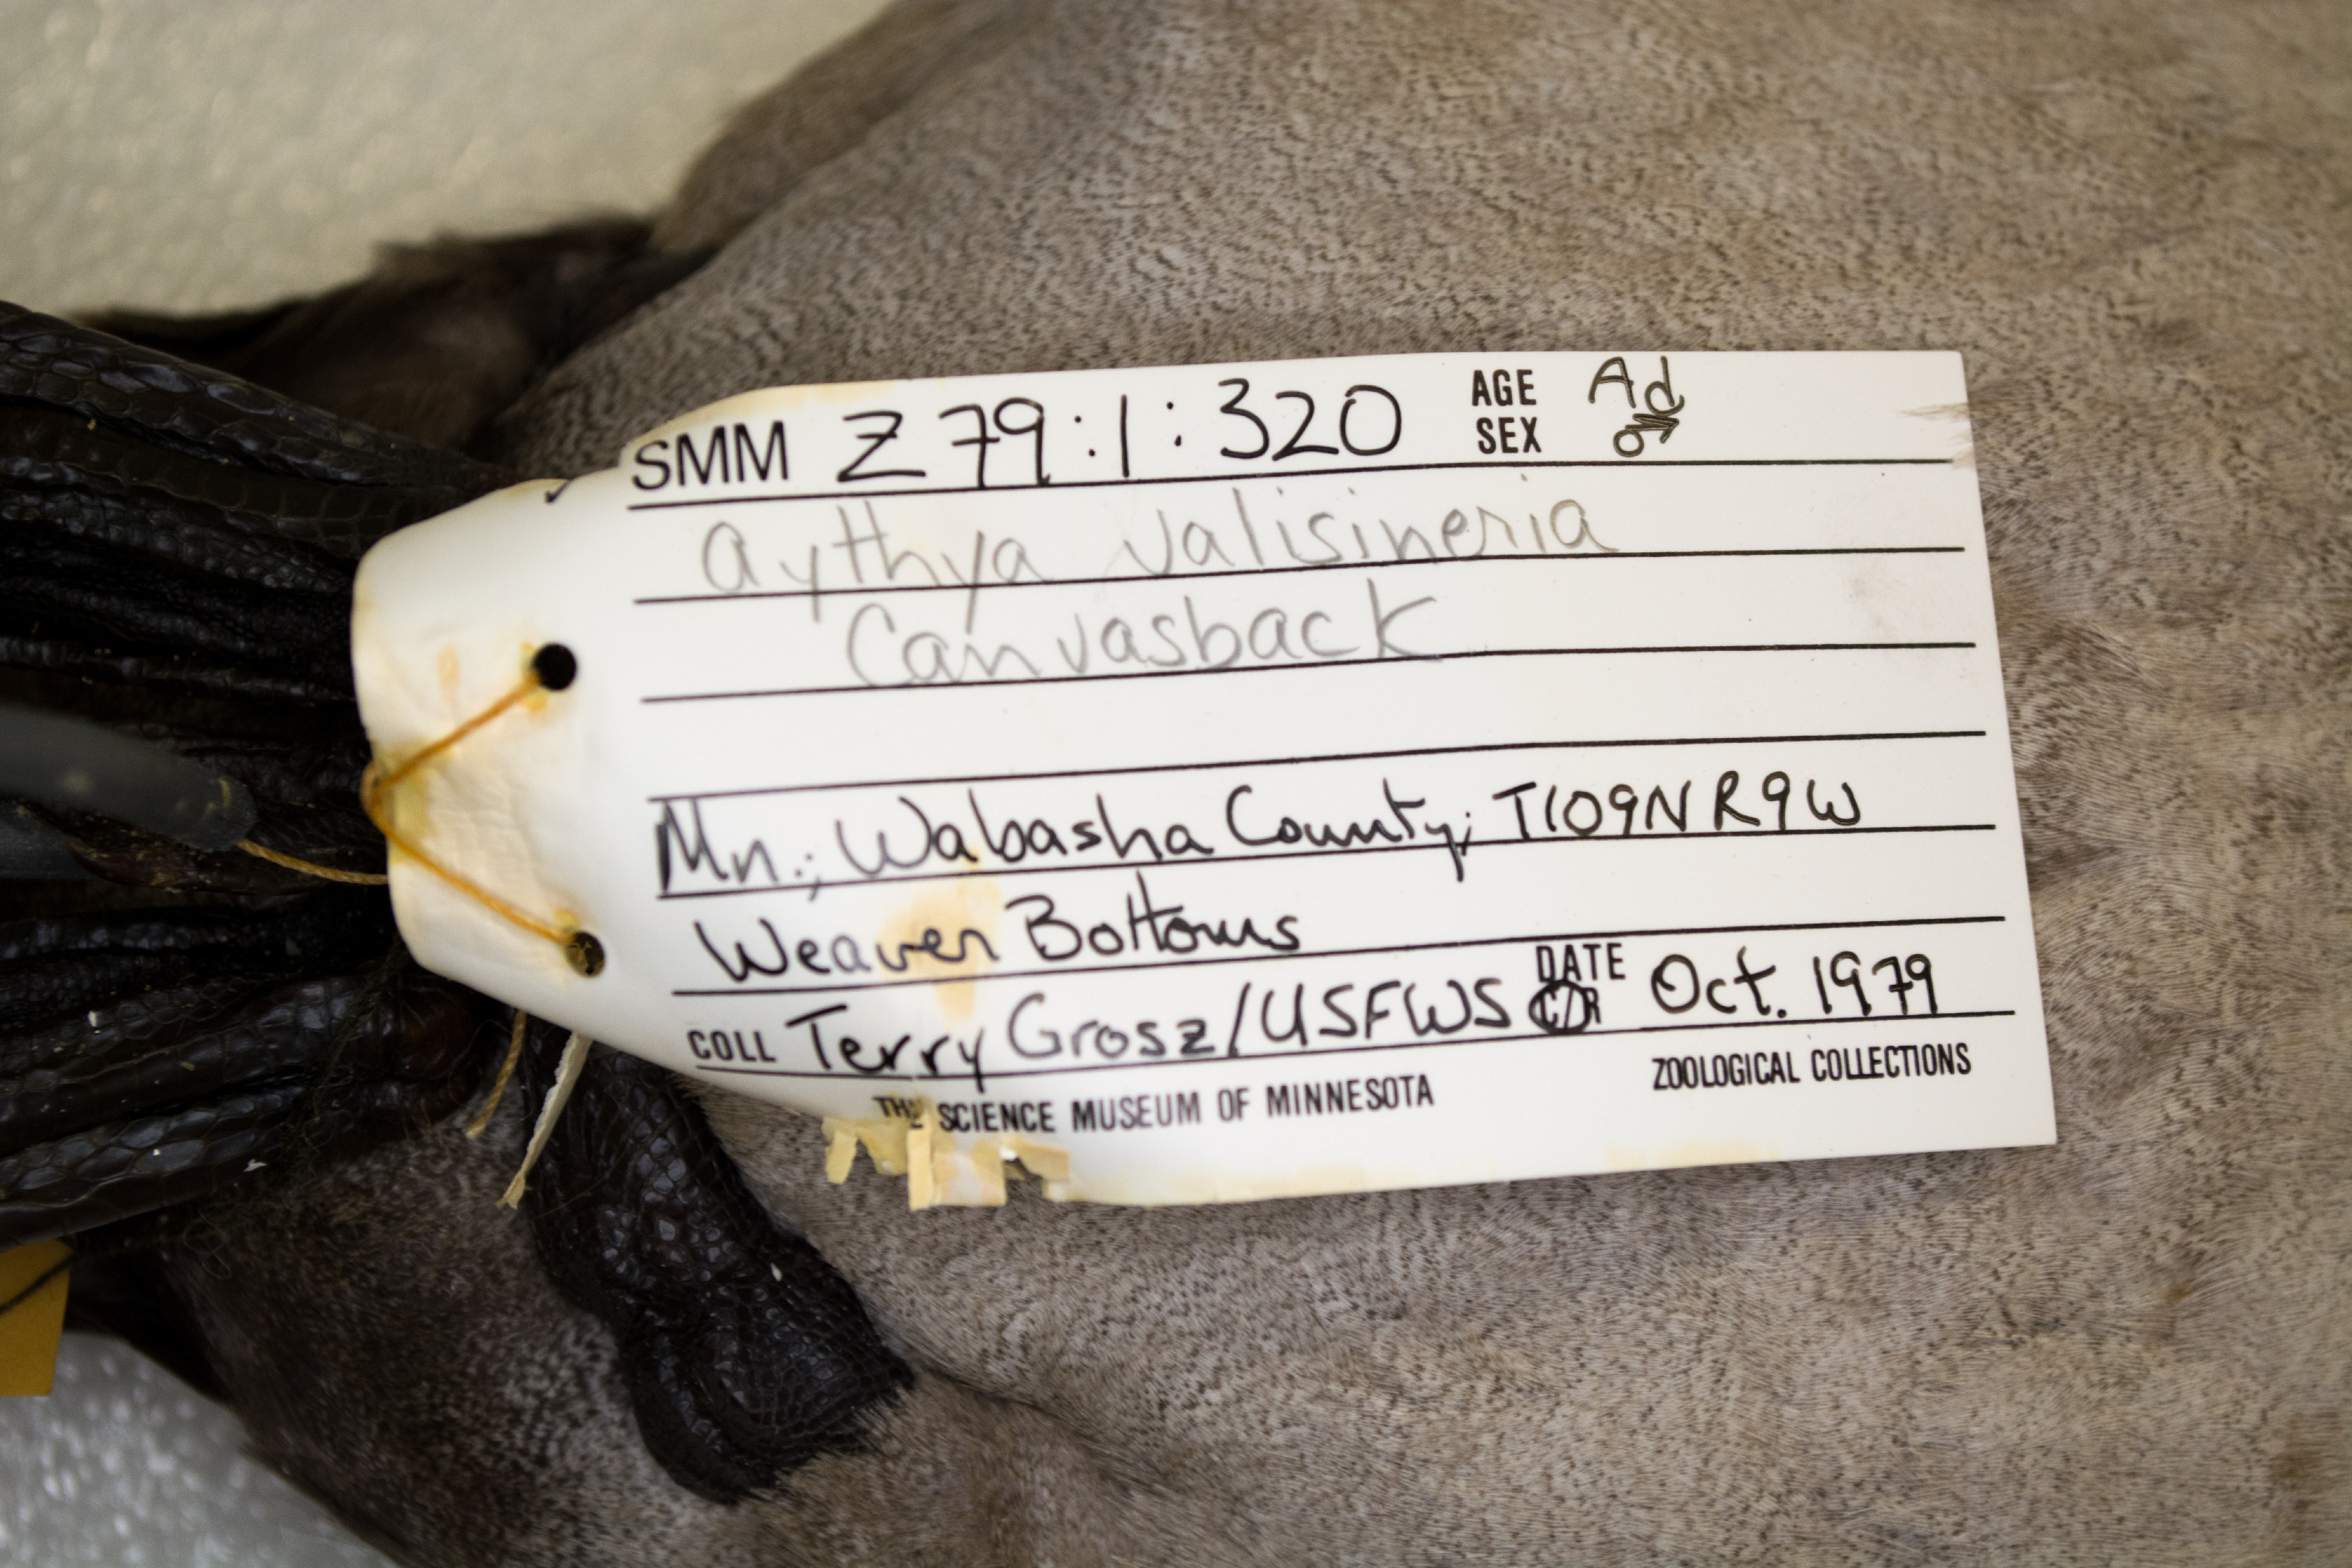 SMM Z 79:1:320 AGE Ad
SEX ♂
Aythya valisineria
Canvasback
Mn.; Wabasha County; T109N R9W
Weaver Bottoms
COLL Terry Grosz/USFWS DATE C/R Oct. 1979
THE SCIENCE MUSEUM OF MINNESOTA ZOOLOGICAL COLLECTIONS